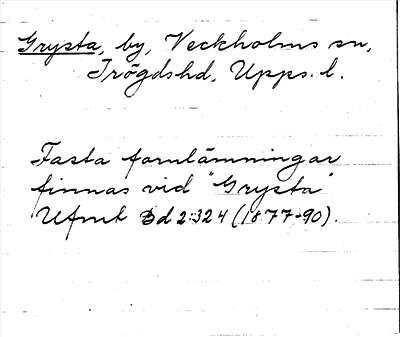 Grysta, by, Veckholms sn,
Trögdshd, Upps. l.
Fasta fornlämningar
finnas vid "Grysta"
Ufmt Bd 2:324 (1877-90).